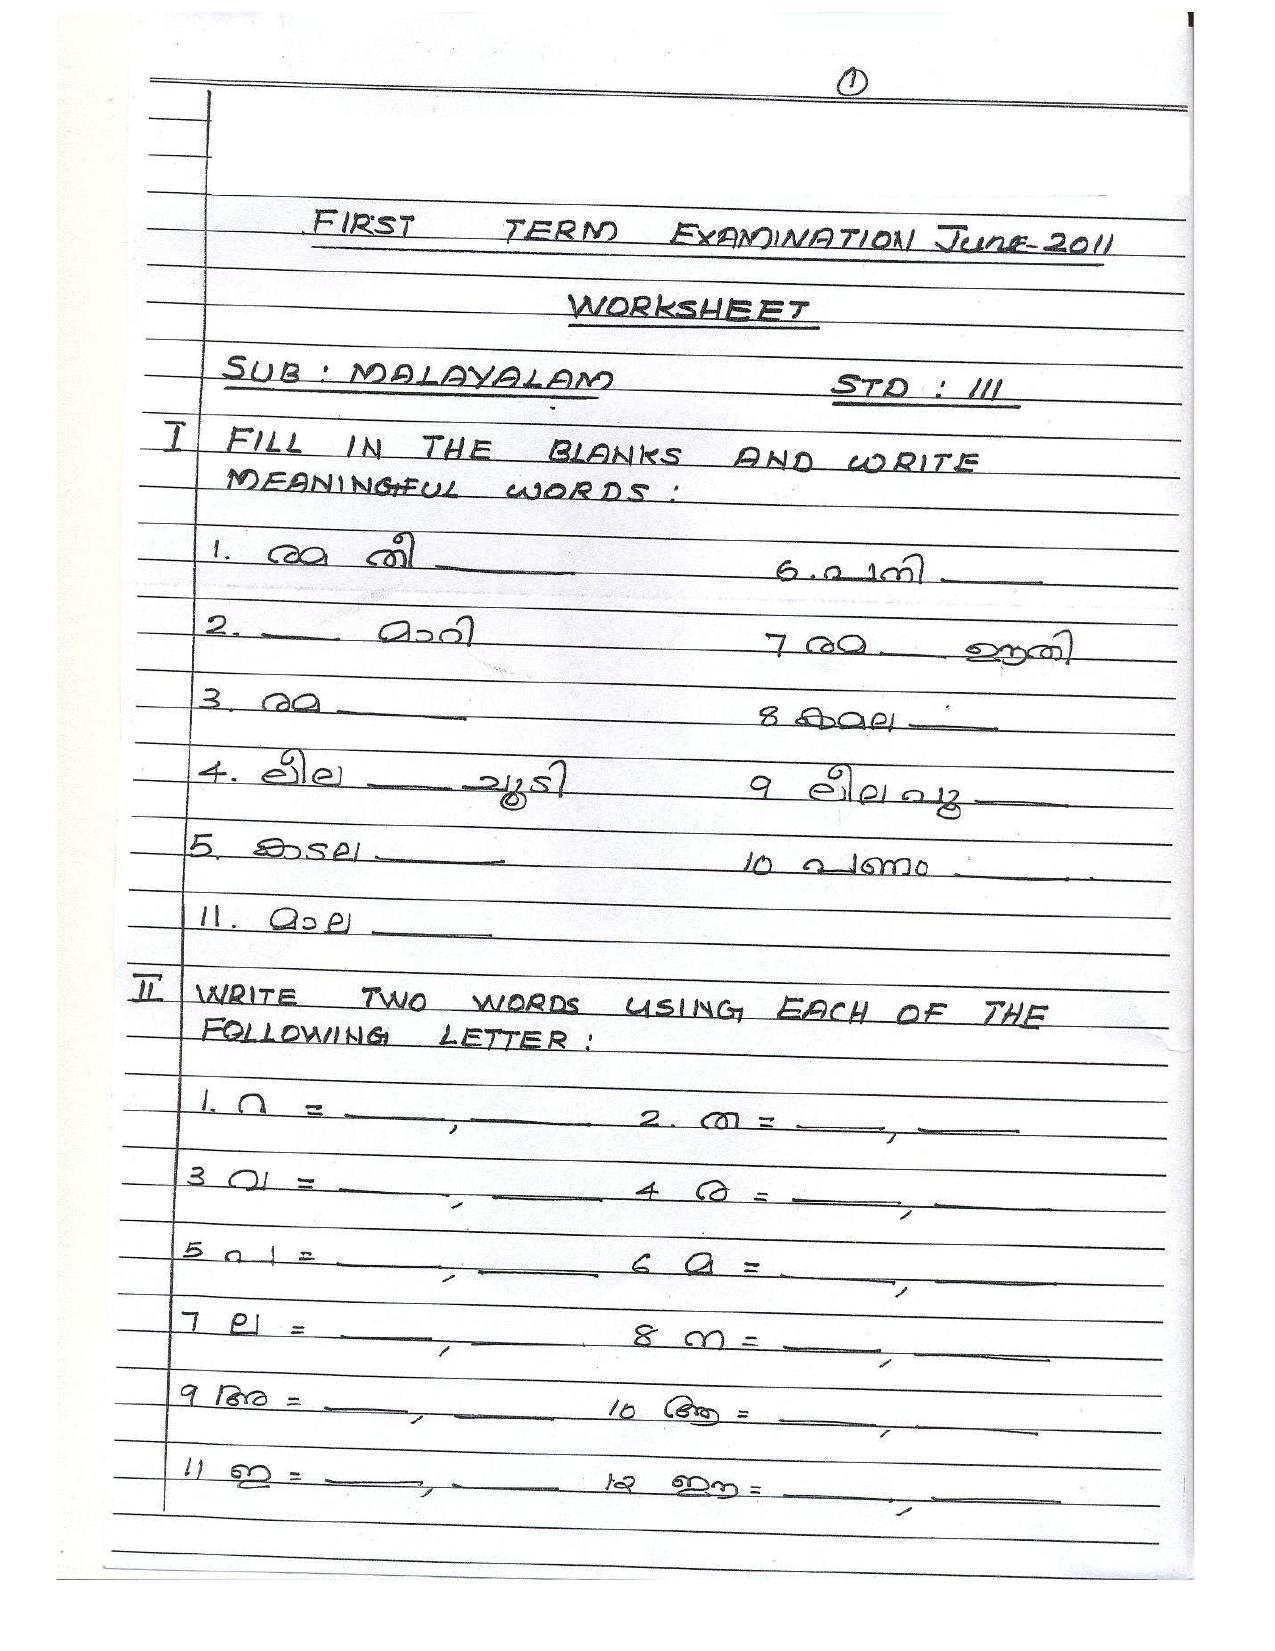 1
FIRST TERM EXAMINATION June-2011
WORKSHEET
SUB : MALAYALAM STD : III
I FILL IN THE BLANKS AND WRITE
MEANINGFUL WORDS :
1. രമ തീ ______ 6. പനി ______
2. ______ മാറി 7 രമ ______ ഊതി
3. രമ ______ 8 കമല ______
4. ലീല ______ ചൂടി 9 ലീല പൂ ______
5. കടല ______ 10 പണം ______
11. മാല ______
II WRITE TWO WORDS USING EACH OF THE
FOLLOWING LETTER :
1. റ = ______, ______ 2. ത = ______, ______
3 വ = ______, ______ 4 ര = ______, ______
5 പ = ______, ______ 6 മ = ______, ______
7 ല = ______, ______ 8 ന = ______, ______
9 അ = ______, ______ 10 ആ = ______, ______
11 ഇ = ______, ______ 12 ഈ = ______, ______